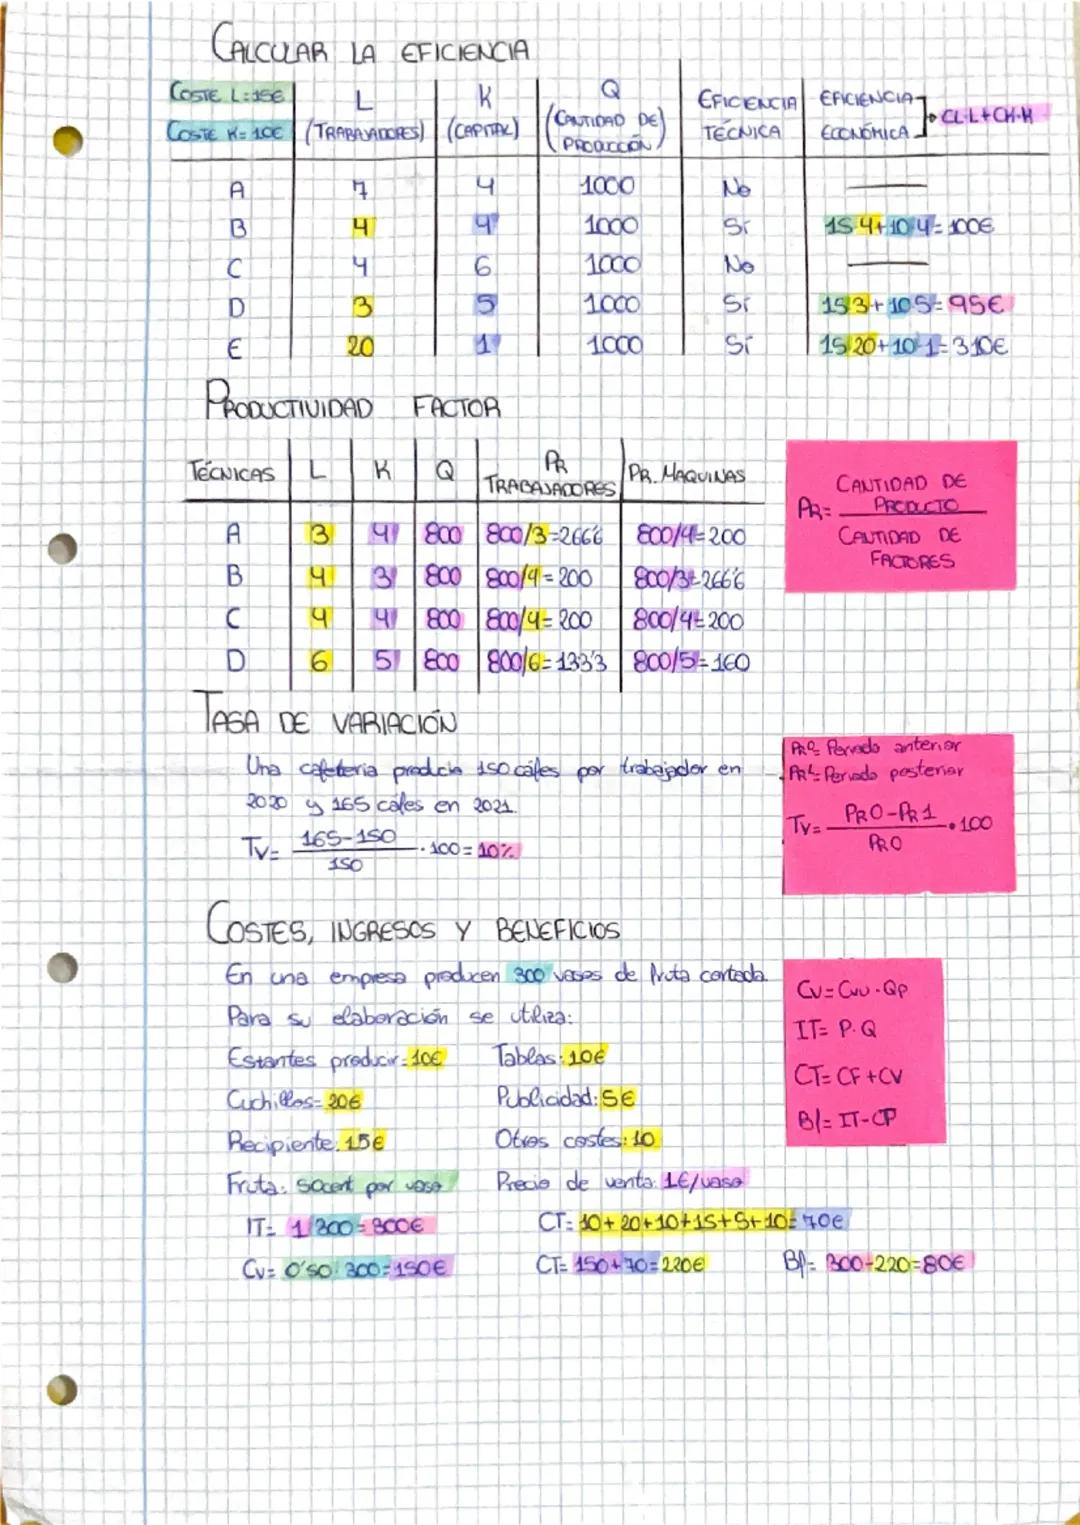 CALCULAR LA EFICIENCIA
COSTE L=15€
COSTE K=10€
L (TRABAJADORES)
K (CAPITAL)
Q (CANTIDAD DE PRODUCCIÓN)
EFICIENCIA TÉCNICA
EFICIENCIA ECONÓMICA
CL·L+CK·K
A 7 4 1000 No ——
B 4 4 1000 Sí 15·4+10·4=100€
C 4 6 1000 No ——
D 3 5 1000 Sí 15·3+10·5=95€
E 20 1 1000 Sí 15·20+10·1=310€
PRODUCTIVIDAD FACTOR
TÉCNICAS L K Q PR TRABAJADORES PR. MAQUINAS
A 3 4 800 800/3=266'6 800/4=200
B 4 3 800 800/4=200 800/3=266'6
C 4 4 800 800/4=200 800/4=200
D 6 5 800 800/6=133'3 800/5=160
PR= CANTIDAD DE PRODUCTO
CANTIDAD DE FACTORES
TASA DE VARIACIÓN
Una cafetería producía 150 cafes por trabajador en
2020 y 165 cafes en 2021.
TV= 165-150
150
·100=10%
PR0= Periodo anterior
PR1= Periodo posterior
TV= PR0-PR1
PR0
·100
COSTES, INGRESOS Y BENEFICIOS
En una empresa producen 300 vasos de fruta cortada.
Para su elaboración se utiliza:
Estantes producir=10€ Tablas:10€
Cuchillos=20€ Publicidad:5€
Recipiente:15€ Otros costes:10
Fruta: 50cent por vaso Precio de venta: 1€/vaso
IT= 1·300=300€ CT= 10+20+10+15+5+10=70€
CV= 0'50·300=150€ CT= 150+70=220€ B/= 300-220=80€
CV=CVU·QP
IT= P·Q
CT= CF+CV
B/= IT-CP